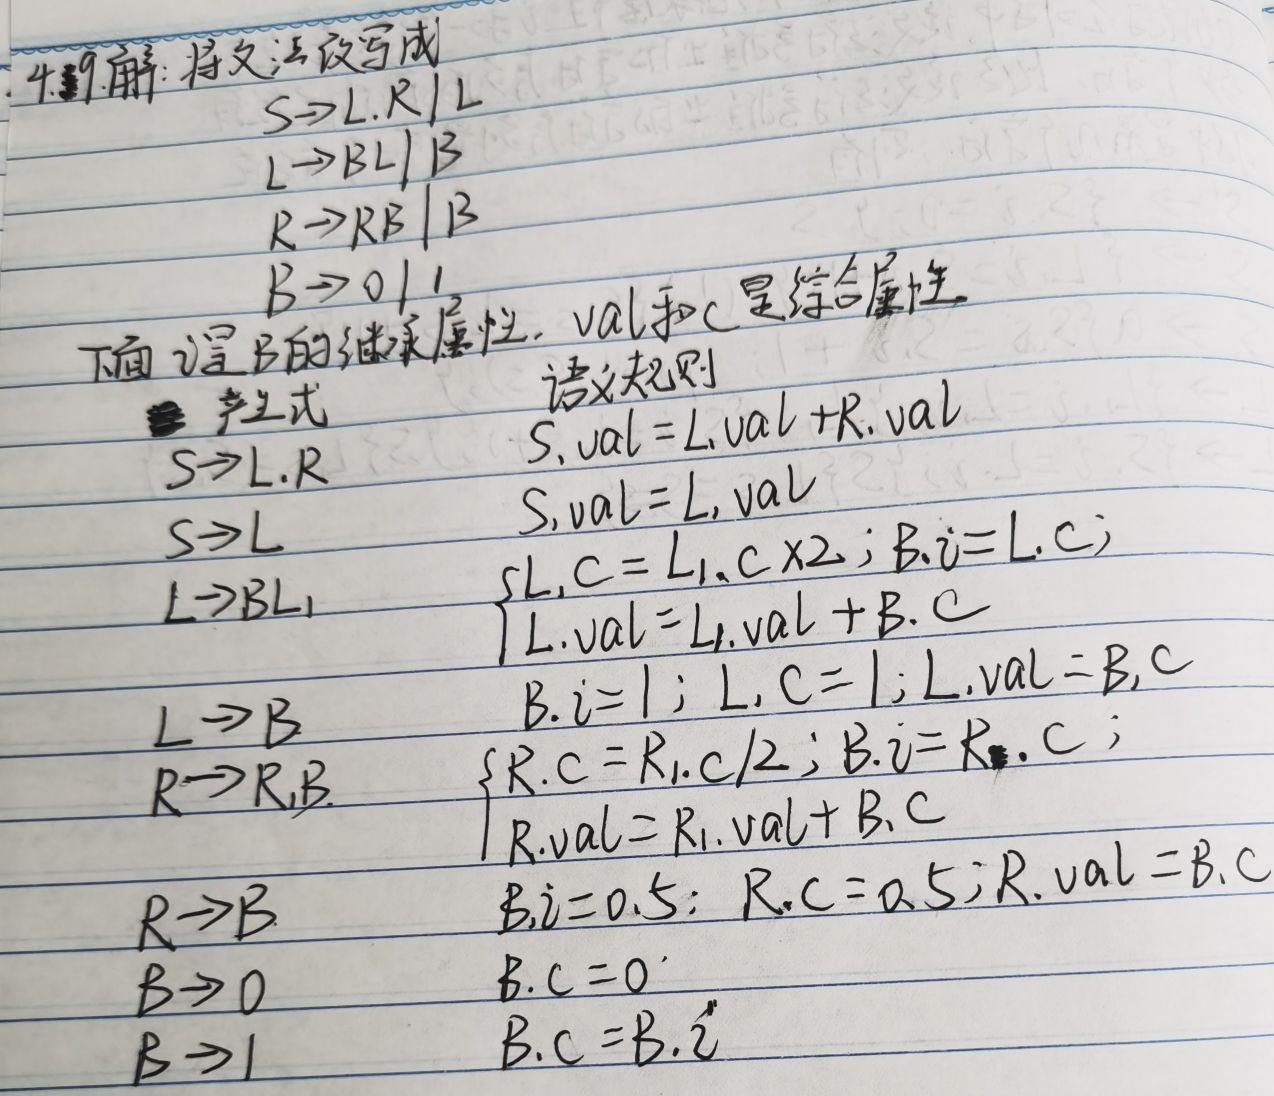 4.9.解: 将文法改写成
S→L.R|L
L→BL|B
R→RB|B
B→0|1
下面 i是B的继承属性. val和c是综合属性
产生式 语义规则
S→L.R S.val=L.val+R.val
S→L S.val=L.val
L→BL₁ {L.c=L₁.c×2; B.i=L.c;
L.val=L₁.val+B.c
L→B B.i=1; L.c=1; L.val=B.c
R→R₁B {R.c=R₁.c/2; B.i=R.c;
R.val=R₁.val+B.c
R→B B.i=0.5; R.c=0.5; R.val=B.c
B→0 B.c=0
B→1 B.c=B.i